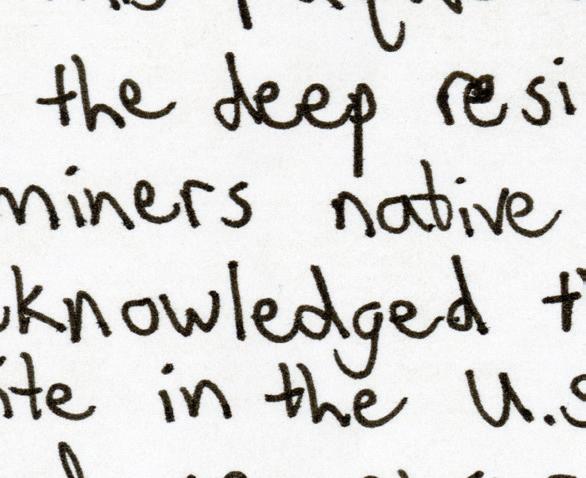 the deep resi
miners native
knowledged t
ite in the U.S